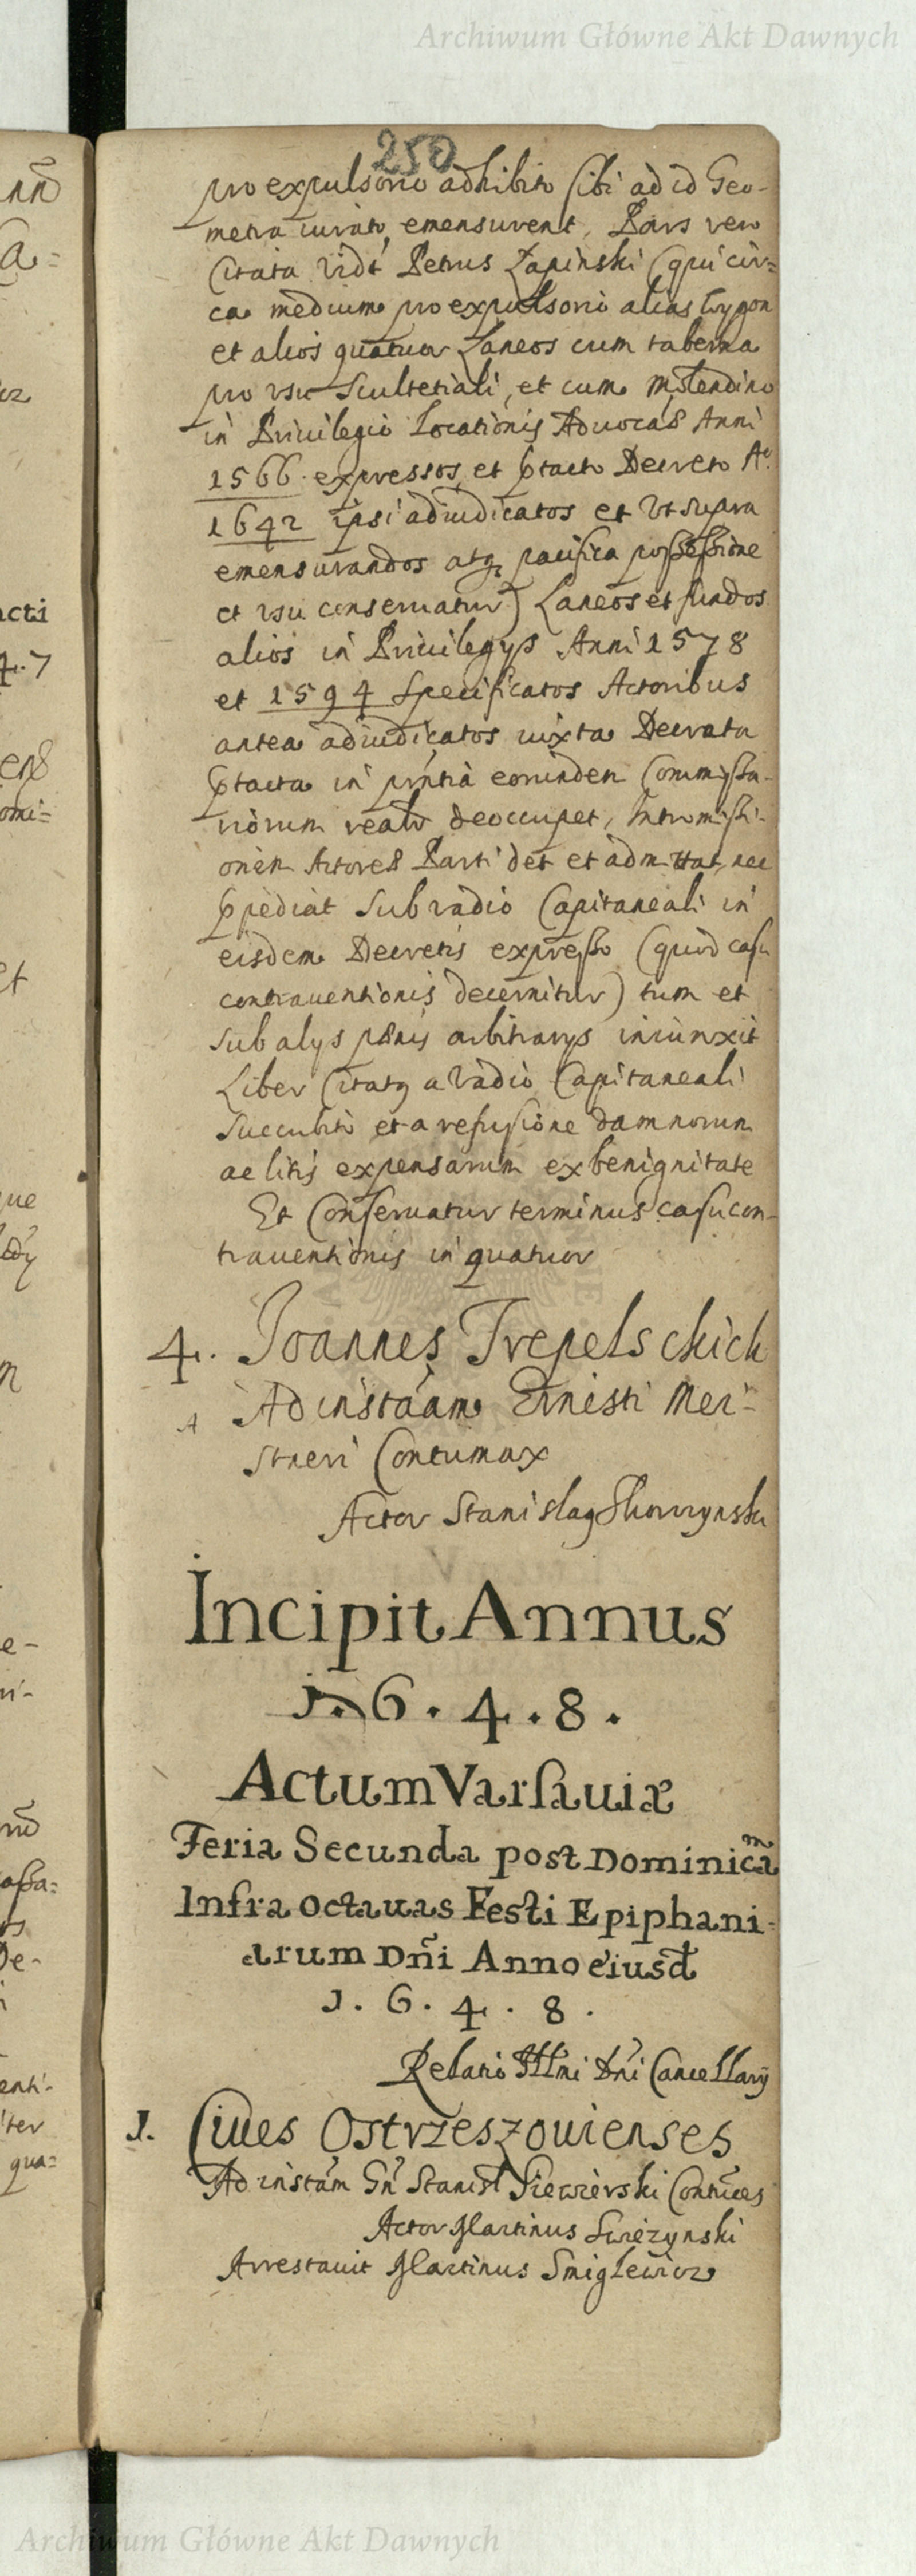 Archiwum Główne Akt Dawnych
250
pro expulsorio adhibito sibi ad id Geo-
metra iurato, emensurent, Pars vero
Citata vidt Petrus Łapinski (qui cir=
ca medium pro expulsorio alias Wygon
et alios quatuor Laneos cum taberna
pro vsu Scultetiali, et cum Molendino
in Priuilegio Locationis Aduocas Anni
1566. expressos, et ptacto Decreto Ao.
1642 ipsi adiudicatos et vt supra
emensurandos atq pacifica possessione
et vsu conseruatur) Laneos et fundos
alios in Priuilegys Anni 1578
et 1594 Specificatos Actoribus
antea adiudicatos iuxta Decreta
ptacta in pntia eorunden Commissa-
riorum realr deoccupet, Intromissi-
onem Actores Parti det et admittat, nec
pediat Sub vadio Capitaneali in
eisdem Decretis expresso (quod casu
contrauentionis decernitur) tum et
sub alys pænis arbitrarys iniunxit
Liber Citatq a vadio Capitaneali
succubito et a refusione damnorum
ac litis expensarum ex benignitate
Et Conseruatur terminus casu con-
trauentionis in quatuor
4. Joannes Trepelschich
A Ad instaam Ernisti Mei-
stneri Contumax
Actor Stanislaq
Incipit Annus
1.6.4.8.
Actum Varsauiæ
Feria Secunda post Dominicam
Infra octauas Festi Epiphani-
arum Dñi Anno eiusd
1.6.4.8.
Relatio Illni Dni Cancellarÿ
1. Ciues Ostrzeszouienses
Ad instam Gn Stanisl Siewierski Contuces
Actor Martinus Swiezynski
Arrestauit Martinus Smiglewicz
Archiwum Główne Akt Dawnych